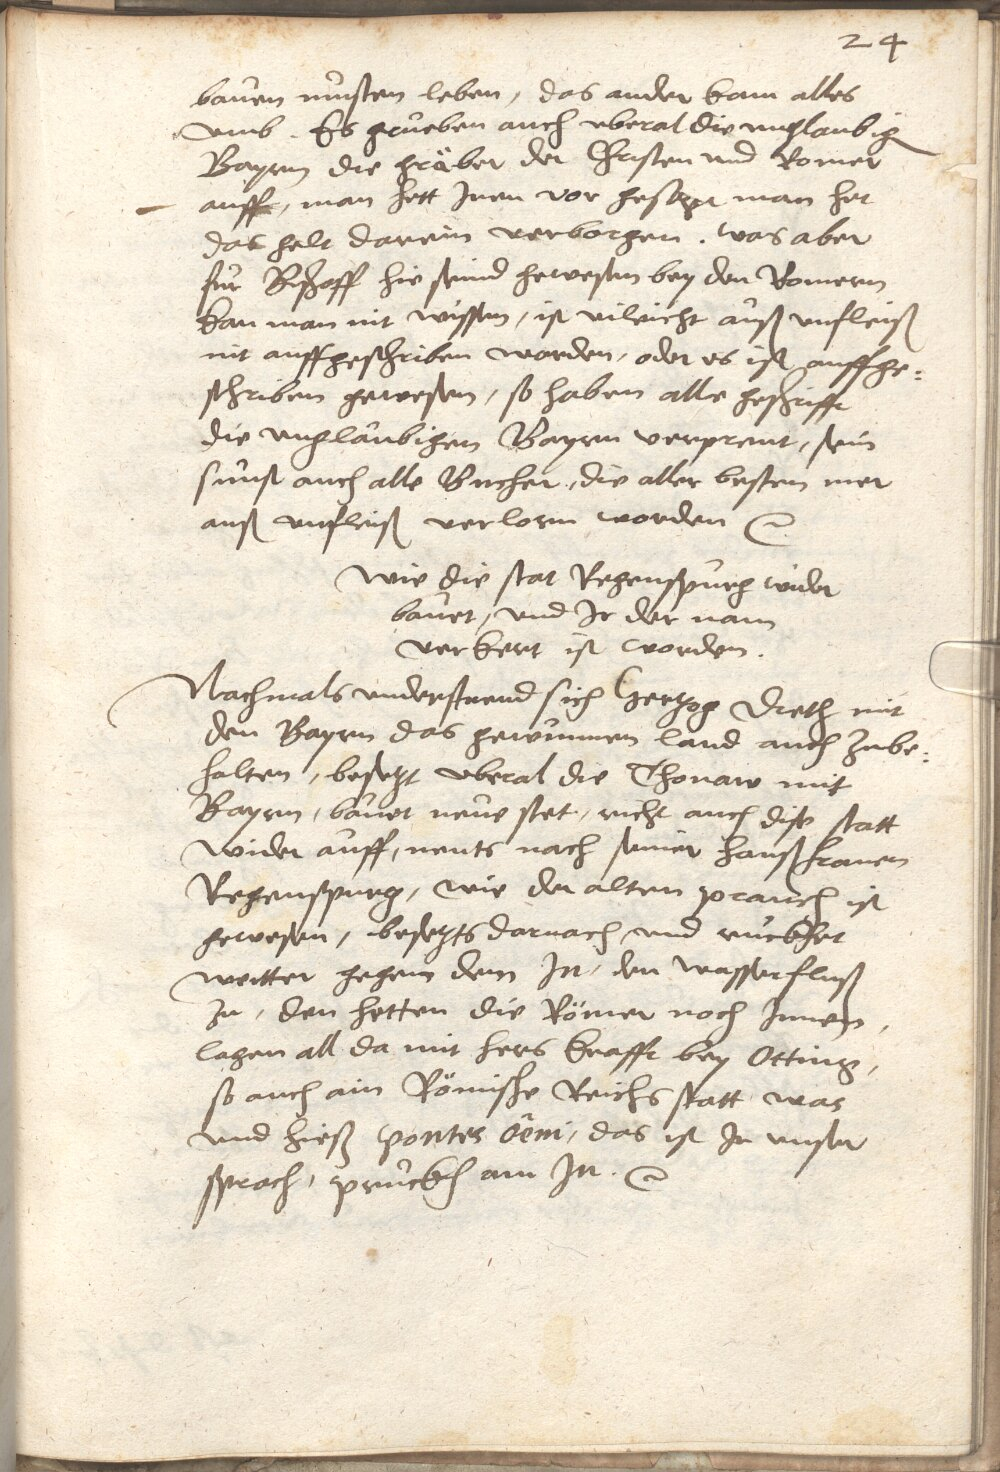 24
bauen musten leben, das ander kam alles
umb. Es grueben auch uberal die unglaubig
Bayrn die gräber der Christen und Romer
auff, man hett Inen vor gesagt man het
das gelt darein verborgen. was aber
für Bischoff hie seind gewesen bey den Romern
kan man nit wissen, ist vileicht auß unfleiß
nit auffgeschriben worden, oder es ist auffge:
schriben gewesen, so haben alle geschrifft
die unglaubigen Bayrn verprent, sein
sunst auch alle Bucher, die aller besten mer
auß unfleiß verlorn worden
Wie die stat Regenspurg wider
bauet, und Ir der nam
verkert ist worden.
Nachmals understuend sich Hertzog Dieth mit
den Bayrn das gewunnen land auch zube:
halten, besetzt uberal die Thonaw mit
Bayrn, bauet neue stet, richt auch dise statt
wider auff, nents nach seiner haußfrauen
Regenspurg, wie der alten prauch ist
gewesen, besetzts darnach und ruckhet
weitter gegem dem In, den wasserfluß
In, den hetten die Römer noch Innen,
lagen all da mit hers krafft bey Otting,
so auch ain Römische Reichs statt was
und hieß pontes Oeni, das ist In unser
sprach, pruckh am In.